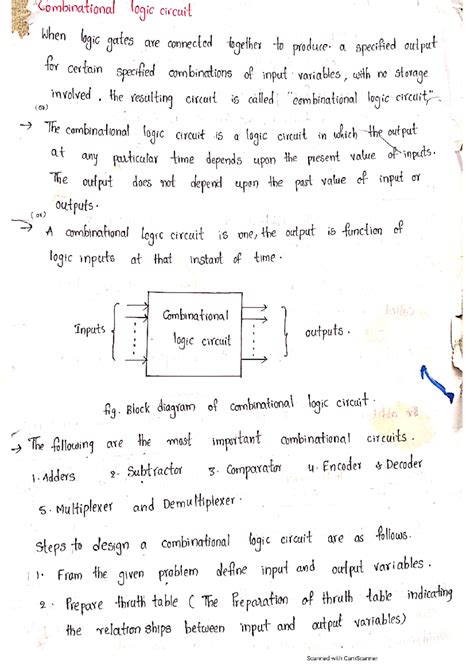 Combinational logic circuit
When logic gates are connected together to produce a specified output
for certain specified combinations of input variables, with no storage
involved, the resulting circuit is called "combinational logic circuit".
(or)
→ The combinational logic circuit is a logic circuit in which the output
at any particular time depends upon the present value of inputs.
The output does not depend upon the past value of input or
outputs.
(or)
→ A combinational logic circuit is one, the output is function of
logic inputs at that instant of time.
Inputs
Combinational
logic circuit
outputs.
fig. Block diagram of combinational logic circuit.
→ The following are the most important combinational circuits.
1. Adders 2. Subtractor 3. Comparator 4. Encoder & Decoder
5. Multiplexer and Demultiplexer.
Steps to design a combinational logic circuit are as follows.
1. From the given problem define input and output variables.
2. Prepare thruth table ( The Preparation of thruth table indicating
the relation ships between input and output variables)
Scanned with CamScanner